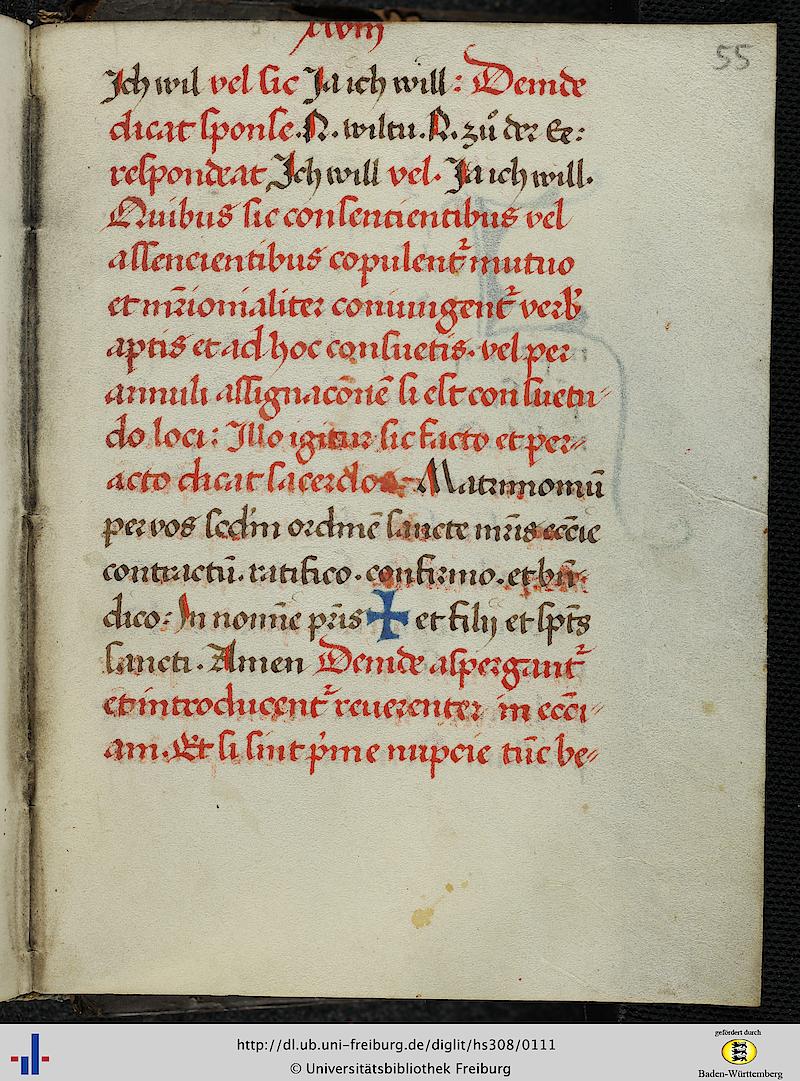 xlviij
55
Ich wil vel sic Ja ich will: Deinde
dicat sponse. N. wiltu. N. zuͦ der Ee:
respondeat Ich will vel. Ja ich will.
Quibus sic consentientibus vel
assencientibus copulent᷑ mutuo
et mr̄ionialiter coniungent᷑ verb̄
aptis et ad hoc consuetis. vel per
annuli assignacōnē si est consuetu-
do loci: Illo igitur sic facto et per-
acto dicat sacerdos: Matrimoniū
per vos scd'm ordinē sancte mr̄is eccīe
contractū. ratifico. confirmo. et bn̄-
dico: In nomīe pr̄is ✠ et filij et sp̄ts
sancti. Amen Deinde aspergant᷑
et introducent᷑ reuerenter in ecci-
am. Et si sint p'me nupcie tūc be-
http://dl.ub.uni-freiburg.de/diglit/hs308/0111
© Universitätsbibliothek Freiburg
gefördert durch
Baden-Württemberg